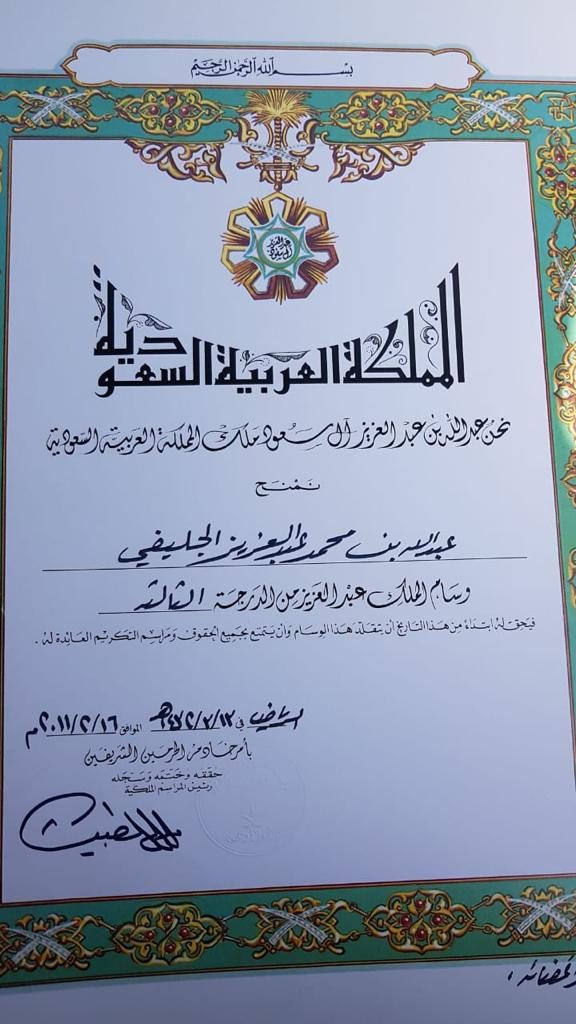 بسم الله الرحمن الرحيم
عبد العزيز آل سعود
المملكة العربية السعودية
نحن عبد الله بن عبد العزيز آل سعود ملك المملكة العربية السعودية
نمنح
عبدالله بن محمد عبدالعزيز الجليفي
وسام الملك عبد العزيز من الدرجة الثالثة
فيحق له ابتداءً من هذا التاريخ أن يتقلد هذا الوسام وأن يتمتع بجميع الحقوق ومراسم التكريم العائدة له .
الرياض في ١٤٣٢/٣/١٣هـ الموافق ٢٠١١/٢/١٦م
بأمر خادم الحرمين الشريفين
حققه وختمه وسجله
رئيس المراسم الملكية